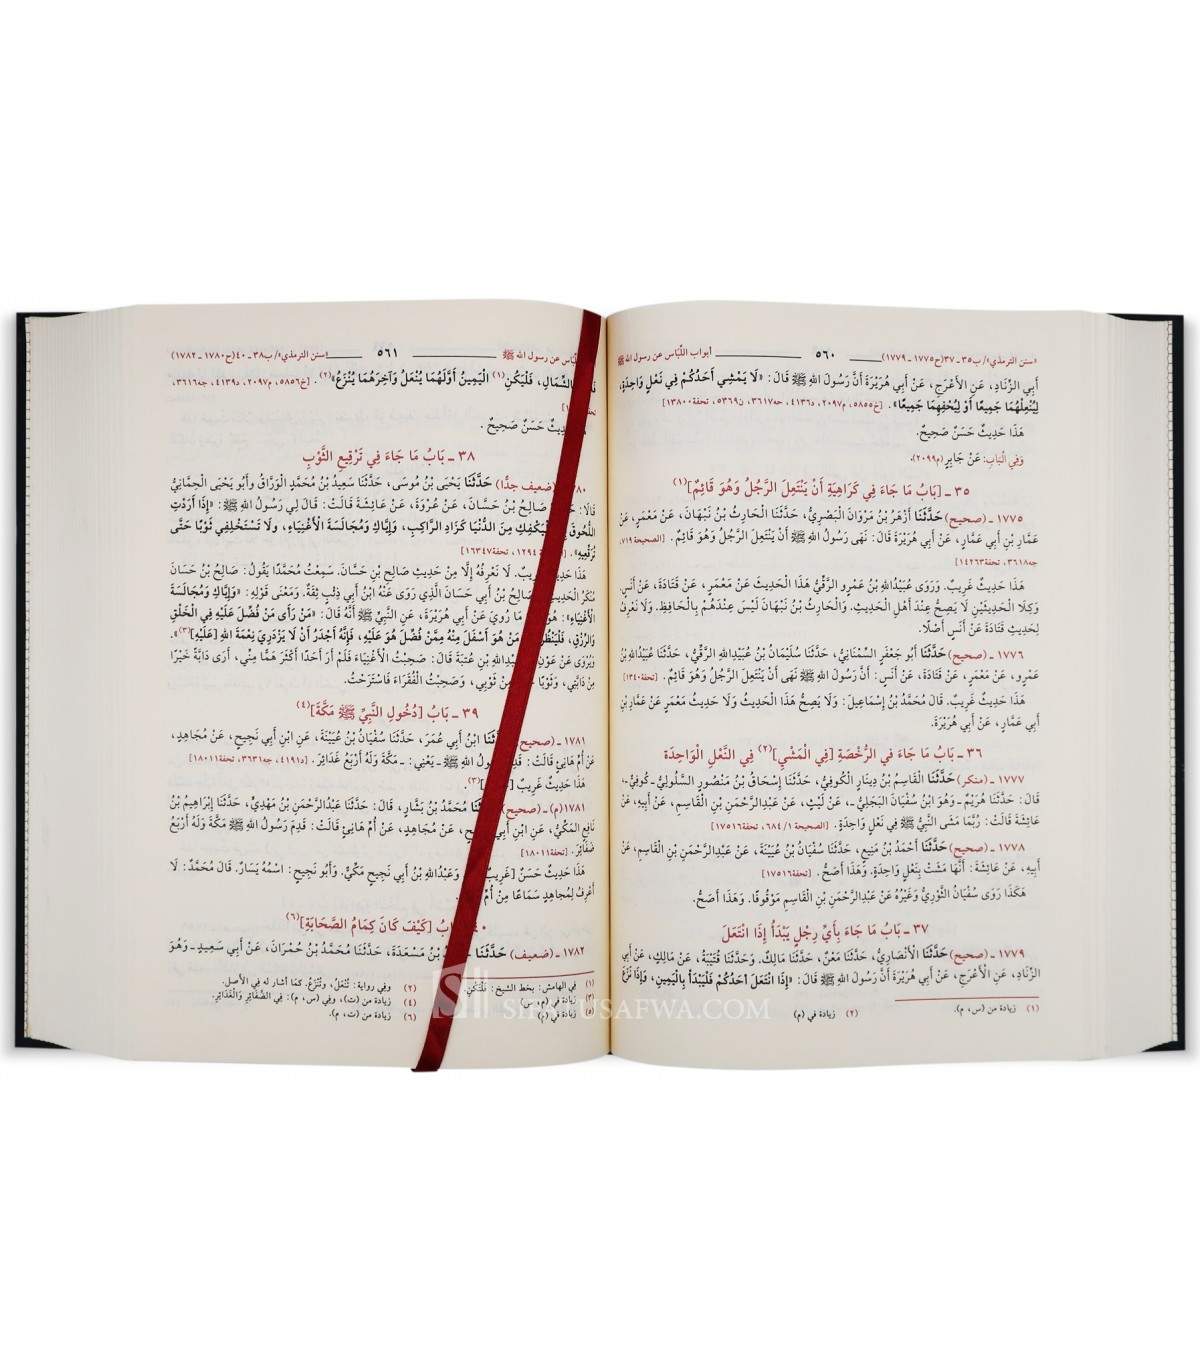 «سنن الترمذي»/ ب٣٥ـ ٣٧(ح١٧٧٥ـ ١٧٧٩) ٥٦٠ أبواب اللّبَاس عن رسول الله ﷺ
أَبِي الزِّنَادِ، عَنِ الأَعْرَجِ، عَنْ أَبِي هُرَيْرَةَ أَنَّ رَسُولَ اللهِ ﷺ قَالَ: «لَا يَمْشِي أَحَدُكُمْ فِي نَعْلٍ وَاحِدَةٍ،
لِيُنْعِلْهُمَا جَمِيعًا أَوْ لِيُحْفِهِمَا جَمِيعًا». [خ٥٨٥٥، م٢٠٩٧، د٤١٣٦، جه٣٦١٧، ن٥٣٦٩، تحفة١٣٨٠٠]
هَذَا حَدِيثٌ حَسَنٌ صَحِيحٌ.
وَفِي الْبَابِ: عَنْ جَابِرٍ (م٢٠٩٩).
٣٥ ـ [بَابُ مَا جَاءَ فِي كَرَاهِيَةِ أَنْ يَنْتَعِلَ الرَّجُلُ وَهُوَ قَائِمٌ](١)
١٧٧٥ ـ (صحيح) حَدَّثَنَا أَزْهَرُ بْنُ مَرْوَانَ الْبَصْرِيُّ، حَدَّثَنَا الْحَارِثُ بْنُ نَبْهَانَ، عَنْ مَعْمَرٍ، عَنْ
عَمَّارِ بْنِ أَبِي عَمَّارٍ، عَنْ أَبِي هُرَيْرَةَ قَالَ: نَهَى رَسُولُ اللهِ ﷺ أَنْ يَنْتَعِلَ الرَّجُلُ وَهُوَ قَائِمٌ. [الصحيحة٧١٩،
جه٣٦١٨، تحفة١٤٢٦٣]
هَذَا حَدِيثٌ غَرِيبٌ. وَرَوَى عُبَيْدُاللهِ بْنُ عَمْرٍو الرَّقِّيُّ هَذَا الْحَدِيثَ عَنْ مَعْمَرٍ، عَنْ قَتَادَةَ، عَنْ أَنَسٍ.
وَكِلَا الْحَدِيثَيْنِ لَا يَصِحُّ عِنْدَ أَهْلِ الْحَدِيثِ. وَالْحَارِثُ بْنُ نَبْهَانَ لَيْسَ عِنْدَهُمْ بِالْحَافِظِ. وَلَا نَعْرِفُ
لِحَدِيثِ قَتَادَةَ عَنْ أَنَسٍ أَصْلًا.
١٧٧٦ ـ (صحيح) حَدَّثَنَا أَبُو جَعْفَرٍ السِّمْنَانِيُّ، حَدَّثَنَا سُلَيْمَانُ بْنُ عُبَيْدِاللهِ الرَّقِّيُّ، حَدَّثَنَا عُبَيْدُاللهِ بْنُ
عَمْرٍو، عَنْ مَعْمَرٍ، عَنْ قَتَادَةَ، عَنْ أَنَسٍ: أَنَّ رَسُولَ اللهِ ﷺ نَهَى أَنْ يَنْتَعِلَ الرَّجُلُ وَهُوَ قَائِمٌ. [تحفة١٣٤٠]
هَذَا حَدِيثٌ غَرِيبٌ. قَالَ مُحَمَّدُ بْنُ إِسْمَاعِيلَ: وَلَا يَصِحُّ هَذَا الْحَدِيثُ وَلَا حَدِيثُ مَعْمَرٍ عَنْ عَمَّارِ بْنِ
أَبِي عَمَّارٍ، عَنْ أَبِي هُرَيْرَةَ.
٣٦ ـ بَابُ مَا جَاءَ فِي الرُّخْصَةِ [فِي الْمَشْيِ](٢) فِي النَّعْلِ الْوَاحِدَة
١٧٧٧ ـ (منكر) حَدَّثَنَا الْقَاسِمُ بْنُ دِينَارٍ الْكُوفِيُّ، حَدَّثَنَا إِسْحَاقُ بْنُ مَنْصُورٍ السَّلُولِيُّ ـ كُوفِيٌّ ـ،
قَالَ: حَدَّثَنَا هُرَيْمٌ ـ وَهُوَ ابْنُ سُفْيَانَ الْبَجَلِيُّ ـ، عَنْ لَيْثٍ، عَنْ عَبْدِالرَّحْمَنِ بْنِ الْقَاسِمِ، عَنْ أَبِيهِ، عَنْ
عَائِشَةَ قَالَتْ: رُبَّمَا مَشَى النَّبِيُّ ﷺ فِي نَعْلٍ وَاحِدَةٍ. [الصحيحة ١/ ٦٨٤، تحفة١٧٥١٦]
١٧٧٨ ـ (صحيح) حَدَّثَنَا أَحْمَدُ بْنُ مَنِيعٍ، حَدَّثَنَا سُفْيَانُ بْنُ عُيَيْنَةَ، عَنْ عَبْدِالرَّحْمَنِ بْنِ الْقَاسِمِ، عَنْ
أَبِيهِ، عَنْ عَائِشَةَ: أَنَّهَا مَشَتْ بِنَعْلٍ وَاحِدَةٍ. وَهَذَا أَصَحُّ. [تحفة١٧٥١٦]
هَكَذَا رَوَى سُفْيَانُ الثَّوْرِيُّ وَغَيْرُهُ عَنْ عَبْدِالرَّحْمَنِ بْنِ الْقَاسِمِ مَوْقُوفًا. وَهَذَا أَصَحُّ.
٣٧ ـ بَابُ مَا جَاءَ بِأَيِّ رِجْلٍ يَبْدَأُ إِذَا انْتَعَلَ
١٧٧٩ ـ (صحيح) حَدَّثَنَا الأَنْصَارِيُّ، حَدَّثَنَا مَعْنٌ، حَدَّثَنَا مَالِكٌ. وَحَدَّثَنَا قُتَيْبَةُ، عَنْ مَالِكٍ، عَنْ أَبِي
الزِّنَادِ، عَنِ الأَعْرَجِ، عَنْ أَبِي هُرَيْرَةَ أَنَّ رَسُولَ اللهِ ﷺ قَالَ: «إِذَا انْتَعَلَ أَحَدُكُمْ فَلْيَبْدَأْ بِالْيَمِينِ، وَإِذَا نَزَعَ
(١) زيادة من (س، م). (٢) زيادة في (م)
اللّبَاس عن رسول الله ﷺ ٥٦١ «سنن الترمذي»/ ب٣٨ـ ٤٠(ح١٧٨٠ـ ١٧٨٢)
بِالشِّمَالِ، فَلْيَكُنِ(١) الْيَمِينُ أَوَّلَهُمَا يُنْعَلُ وَآخِرَهُمَا يُنْزَعُ»(٢). [خ٥٨٥٦، م٢٠٩٧، د٤١٣٩، جه٣٦١٦،
حَدِيثٌ حَسَنٌ صَحِيحٌ.
٣٨ ـ بَابُ مَا جَاءَ فِي تَرْقِيعِ الثَّوْبِ
(ضعيف جدًّا) حَدَّثَنَا يَحْيَى بْنُ مُوسَى، حَدَّثَنَا سَعِيدُ بْنُ مُحَمَّدٍ الْوَرَّاقُ وَأَبُو يَحْيَى الْحِمَّانِيُّ
قَالَا: صَالِحُ بْنُ حَسَّانَ، عَنْ عُرْوَةَ، عَنْ عَائِشَةَ قَالَتْ: قَالَ لِي رَسُولُ اللهِ ﷺ: «إِذَا أَرَدْتِ
اللُّحُوقَ فَلْيَكْفِكِ مِنَ الدُّنْيَا كَزَادِ الرَّاكِبِ، وَإِيَّاكِ وَمُجَالَسَةَ الأَغْنِيَاءِ، وَلَا تَسْتَخْلِفِي ثَوْبًا حَتَّى
تُرَقِّعِيهِ». ١٢٩٤، تحفة١٦٣٤٧]
هَذَا حَدِيثٌ غَرِيبٌ. لَا نَعْرِفُهُ إِلَّا مِنْ حَدِيثِ صَالِحِ بْنِ حَسَّانَ. سَمِعْتُ مُحَمَّدًا يَقُولُ: صَالِحُ بْنُ حَسَّانَ
مُنْكَرُ الْحَدِيثِ صَالِحُ بْنُ أَبِي حَسَانَ الَّذِي رَوَى عَنْهُ ابْنُ أَبِي ذِئْبٍ ثِقَةٌ. وَمَعْنَى قَوْلِهِ: «وَإِيَّاكِ وَمُجَالَسَةَ
الأَغْنِيَاءِ»: هُوَ مَا رُوِيَ عَنْ أَبِي هُرَيْرَةَ، عَنِ النَّبِيِّ ﷺ أَنَّهُ قَالَ: «مَنْ رَأَى مَنْ فُضِّلَ عَلَيْهِ فِي الْخَلْقِ
وَالرِّزْقِ، فَلْيَنْظُرْ مَنْ هُوَ أَسْفَلَ مِنْهُ مِمَّنْ فُضِّلَ هُوَ عَلَيْهِ، فَإِنَّهُ أَجْدَرُ أَنْ لَا يَزْدَرِيَ نِعْمَةَ اللهِ [عَلَيْهِ](٣)».
وَيُرْوَى عَنْ عَوْنِ عَبْدِاللهِ بْنِ عُتْبَةَ قَالَ: صَحِبْتُ الأَغْنِيَاءَ فَلَمْ أَرَ أَحَدًا أَكْثَرَ هَمًّا مِنِّي، أَرَى دَابَّةً خَيْرًا
مِنْ دَابَّتِي، وَثَوْبًا مِنْ ثَوْبِي، وَصَحِبْتُ الْفُقَرَاءَ فَاسْتَرَحْتُ.
٣٩ ـ بَابُ [دُخُولِ النَّبِيِّ ﷺ مَكَّةَ](٤)
١٧٨١ ـ (صحيح) حَدَّثَنَا ابْنُ أَبِي عُمَرَ، حَدَّثَنَا سُفْيَانُ بْنُ عُيَيْنَةَ، عَنِ ابْنِ أَبِي نَجِيحٍ، عَنْ مُجَاهِدٍ،
عَنْ أُمِّ هَانِئٍ قَالَتْ: رَسُولُ اللهِ ﷺ ـ يَعْنِي: ـ مَكَّةَ وَلَهُ أَرْبَعُ غَدَائِرَ. [د٤١٩١، جه٣٦٣١، تحفة١٨٠١١]
هَذَا حَدِيثٌ غَرِيبٌ (٣).
١٧٨١(م) ـ (صحيح) حَدَّثَنَا مُحَمَّدُ بْنُ بَشَّارٍ، قَالَ: حَدَّثَنَا عَبْدُالرَّحْمَنِ بْنُ مَهْدِيٍّ، حَدَّثَنَا إِبْرَاهِيمُ بْنُ
نَافِعٍ الْمَكِّيُّ، عَنِ ابْنِ أَبِي نَجِيحٍ، عَنْ مُجَاهِدٍ، عَنْ أُمِّ هَانِئٍ قَالَتْ: قَدِمَ رَسُولُ اللهِ ﷺ مَكَّةَ وَلَهُ أَرْبَعُ
ضَفَائِرَ. [تحفة١٨٠١١]
هَذَا حَدِيثٌ حَسَنٌ [غَرِيبٌ وَعَبْدُاللهِ بْنُ أَبِي نَجِيحٍ مَكِّيٌّ. وَأَبُو نَجِيحٍ: اسْمُهُ يَسَارٌ. قَالَ مُحَمَّدٌ: لَا
أَعْرِفُ لِمُجَاهِدٍ سَمَاعًا مِنْ أُمِّ
بَابُ [كَيْفَ كَانَ كِمَامُ الصَّحَابَةِ](٦)
١٧٨٢ ـ (ضعيف) حَدَّثَنَا بْنُ مَسْعَدَةَ، حَدَّثَنَا مُحَمَّدُ بْنُ حُمْرَانَ، عَنْ أَبِي سَعِيدٍ ـ وَهُوَ
(١) في الهامش: بخط الشيخ: فَلْتَكُن. (٢) وفي رواية: تُنْعَلُ، وتُنْزَعُ. كما أشار له في الأصل.
زيادة في (م، س) (٤) زيادة من (ت)، وفي (س، م): في الضَّفَائِرِ وَالْغَدَائِرِ.
زيادة في (م) (٦) زيادة من (ت، م).